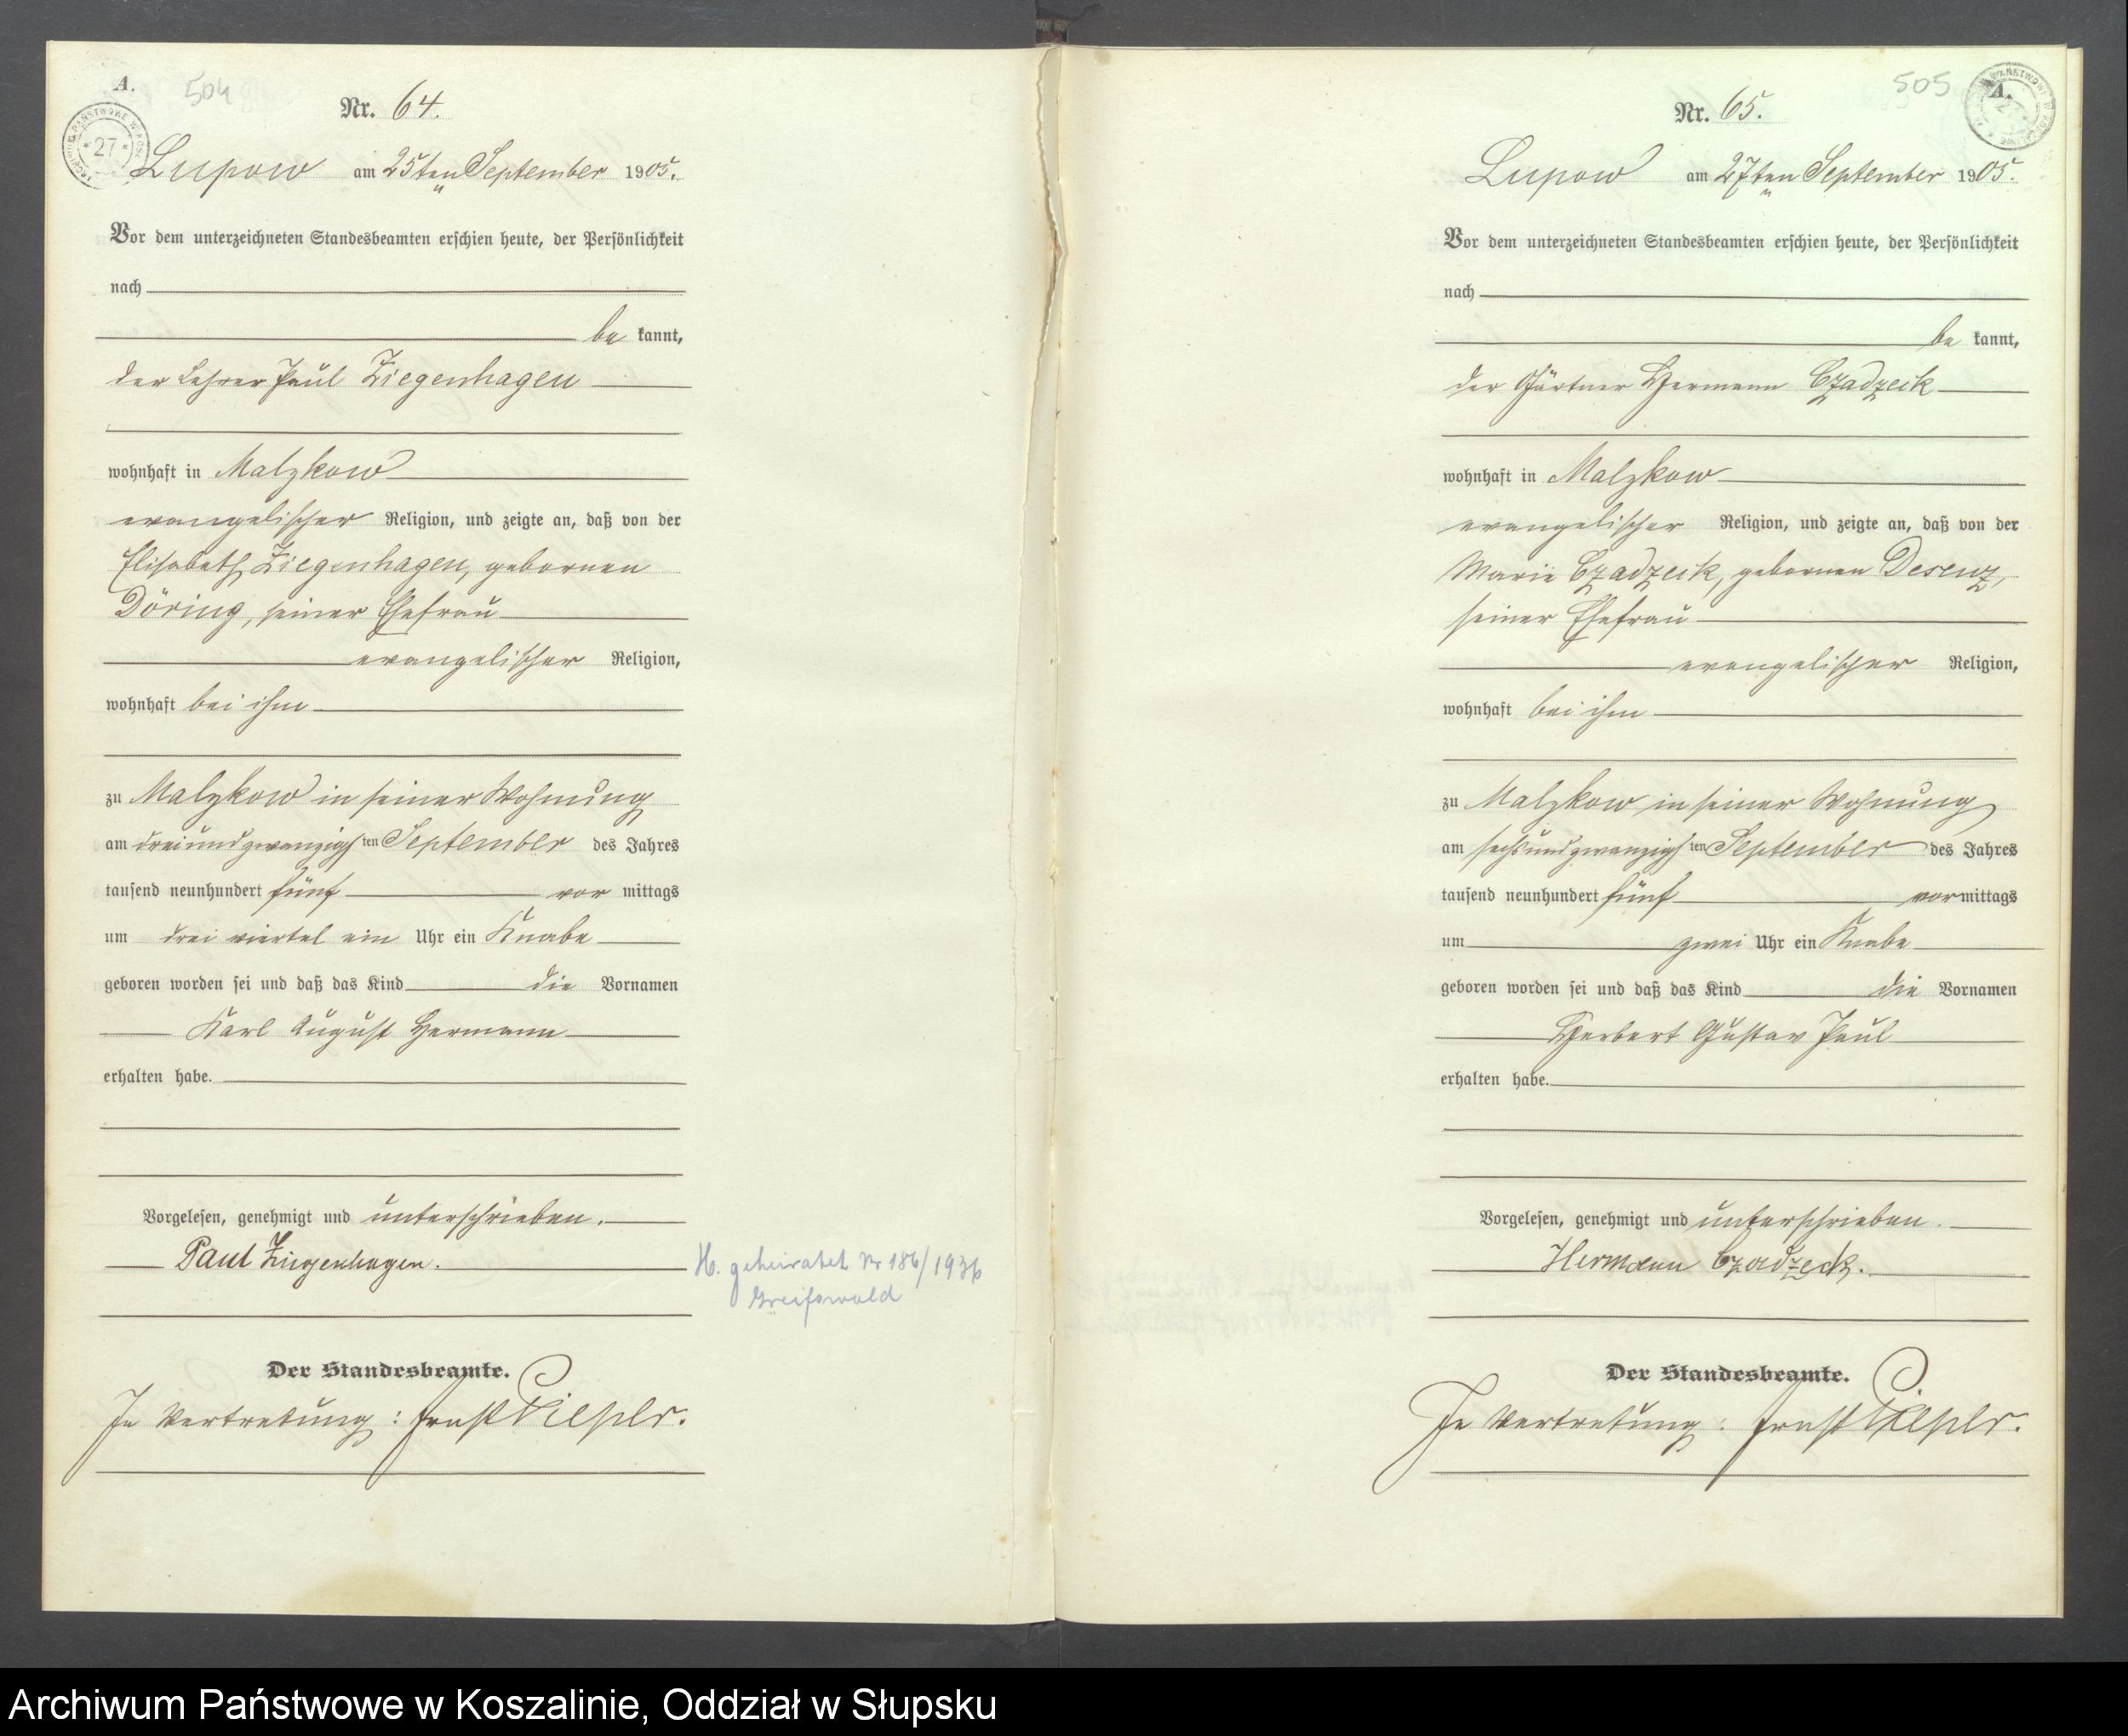 A.
504
Nr. 64.
27
Lupow am 25ten September 1905.
Vor dem unterzeichneten Standesbeamten erschien heute, der Persönlichkeit
nach
be kannt,
der Lehrer Paul Ziegenhagen
wohnhaft in Malzkow
evangelischer Religion, und zeigte an, daß von der
Elisabeth Ziegenhagen, gebornen
Döring, seiner Ehefrau
evangelischer Religion,
wohnhaft bei ihm
zu Malzkow in seiner Wohnung
am dreiundzwanzigsten September des Jahres
tausend neunhundert fünf vor mittags
um drei viertel ein Uhr ein Knabe
geboren worden sei und daß das Kind die Vornamen
Karl August Hermann
erhalten habe.
Vorgelesen, genehmigt und unterschrieben.
Paul Ziegenhagen.
H. geheiratet Nr 186/1936
Greifswald
Der Standesbeamte.
In Vertretung: Ernst Pieper.
505
A.
Nr. 65.
Lupow am 27ten September 1905.
Vor dem unterzeichneten Standesbeamten erschien heute, der Persönlichkeit
nach
be kannt,
der Gärtner Hermann Czadzeck
wohnhaft in Malzkow
evangelischer Religion, und zeigte an, daß von der
Marie Czadzeck, gebornen Desenz,
seiner Ehefrau
evangelischer Religion,
wohnhaft bei ihm
zu Malzkow in seiner Wohnung
am sechsundzwanzigsten September des Jahres
tausend neunhundert fünf vormittags
um zwei Uhr ein Knabe
geboren worden sei und daß das Kind die Vornamen
Herbert Gustav Paul
erhalten habe.
Vorgelesen, genehmigt und unterschrieben.
Hermann Czadzeck.
Der Standesbeamte.
In Vertretung: Ernst Pieper.
Archiwum Państwowe w Koszalinie, Oddział w Słupsku